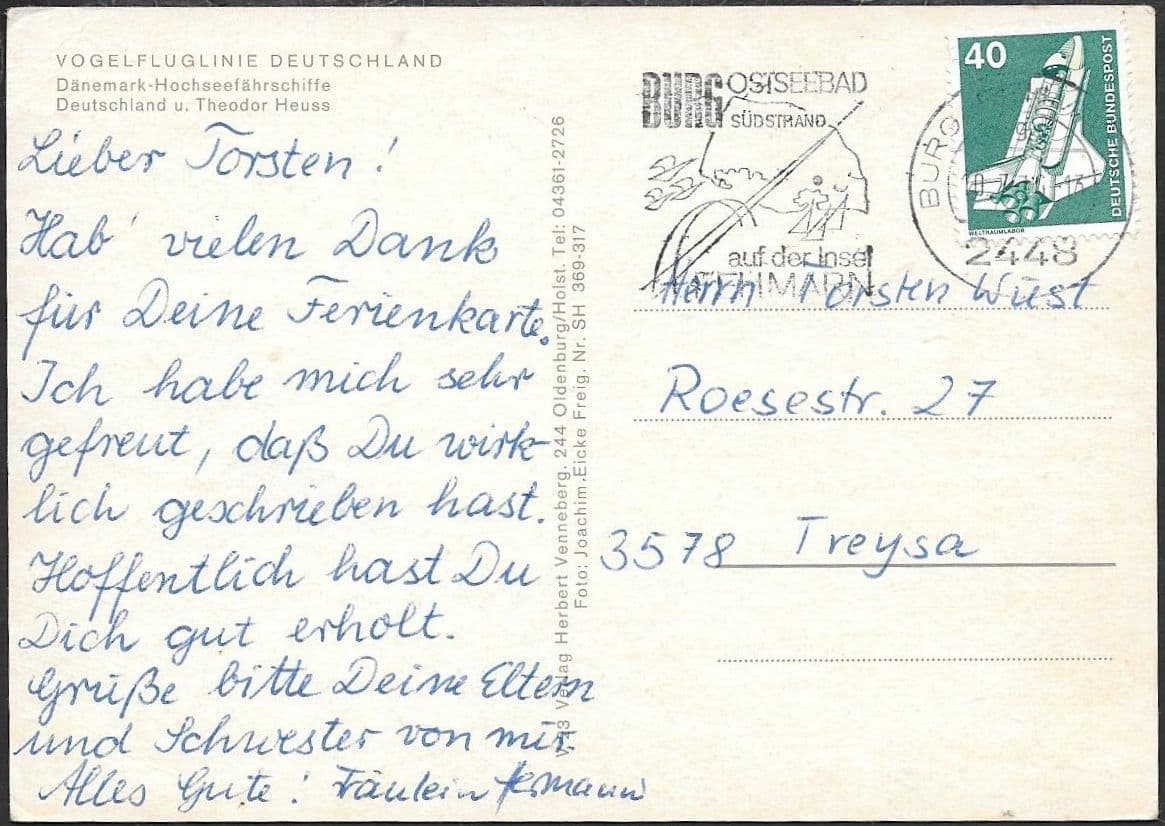 VOGELFLUGLINIE DEUTSCHLAND
Dänemark-Hochseefährschiffe
Deutschland u. Theodor Heuss
Lieber Torsten!
Hab' vielen Dank
für Deine Ferienkarte.
Ich habe mich sehr
gefreut, daß Du wirk-
lich geschrieben hast.
Hoffentlich hast Du
Dich gut erholt.
Grüße bitte Deine Eltern
und Schwester von mir.
Alles Gute! Fräulein
Verlag Herbert Venneberg. 244 Oldenburg/Holst. Tel: 04361-2726
Foto: Joachim.Eicke Freig. Nr. SH 369-317
BURG OSTSEEBAD
SÜDSTRAND
auf der Insel
FEHMARN
BURG
2448
40
DEUTSCHE BUNDESPOST
WELTRAUMLABOR
Herrn Torsten Wüst
Roesestr. 27
3578 Treysa